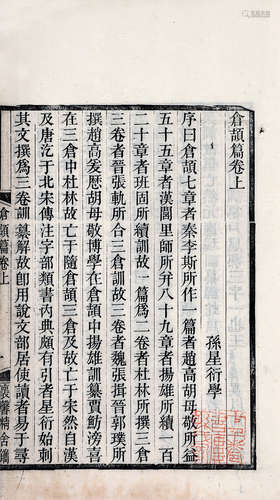 倉頡篇卷上
孫星衍學
序曰倉頡七章者秦李斯所作一篇者趙高胡母敬所益
五十五章者漢閭里師所并八十九章者揚雄所續一百
二十章者班固所續訓故一篇爲二卷者杜林所撰三倉
三卷者晉張軌所合三倉訓故三卷者魏張揖晉郭璞所
撰趙高爰歷胡母敬博學在倉頡中揚雄訓纂賈魴滂喜
在三倉中杜林故亡于隨倉頡三倉及故亡于宋然自漢
及唐汔于北宋傳注字部類書內典頗有引者星衍始刺
其文撰爲三卷訓纂解故即用說文部居使讀者易于尋
倉頡篇卷上
一